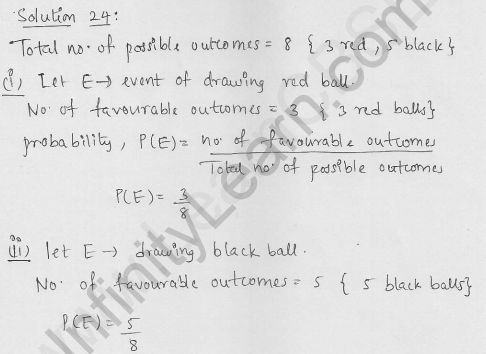 Solution 24:
Total no. of possible outcomes = 8 { 3 red, 5 black}
(i) Let E → event of drawing red ball.
No. of favourable outcomes = 3 { 3 red balls}
probability, P(E) = no. of favourable outcome
Total no. of possible outcomes
P(E) = 3/8
(ii) let E → drawing black ball.
No. of favourable outcomes = 5 { 5 black balls}
P(E) = 5/8
InfinityLearn.com